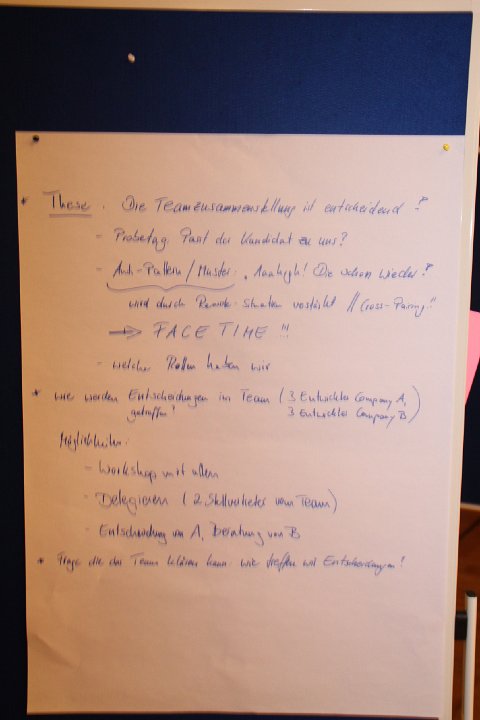 * These : Die Teamzusammenstellung ist entscheidend ?
- Probetag: Passt der Kandidat zu uns?
- Anti-Pattern / Muster: Die schon wieder?
wird durch Remote-Situation verstärkt // Cross-Pairing!!
⇒ FACE TIME !!!
- welche Rollen haben wir
* wie werden Entscheidungen im Team ( 3 Entwickler Company A,
getroffen? 3 Entwickler Company B )
Möglichkeiten:
- Workshop mit allen
- Delegieren ( 2 Stellvertreter vom Team )
- Entscheidung von A, Beratung von B
* Frage die das Team klären kann wie treffen wir Entscheidungen?